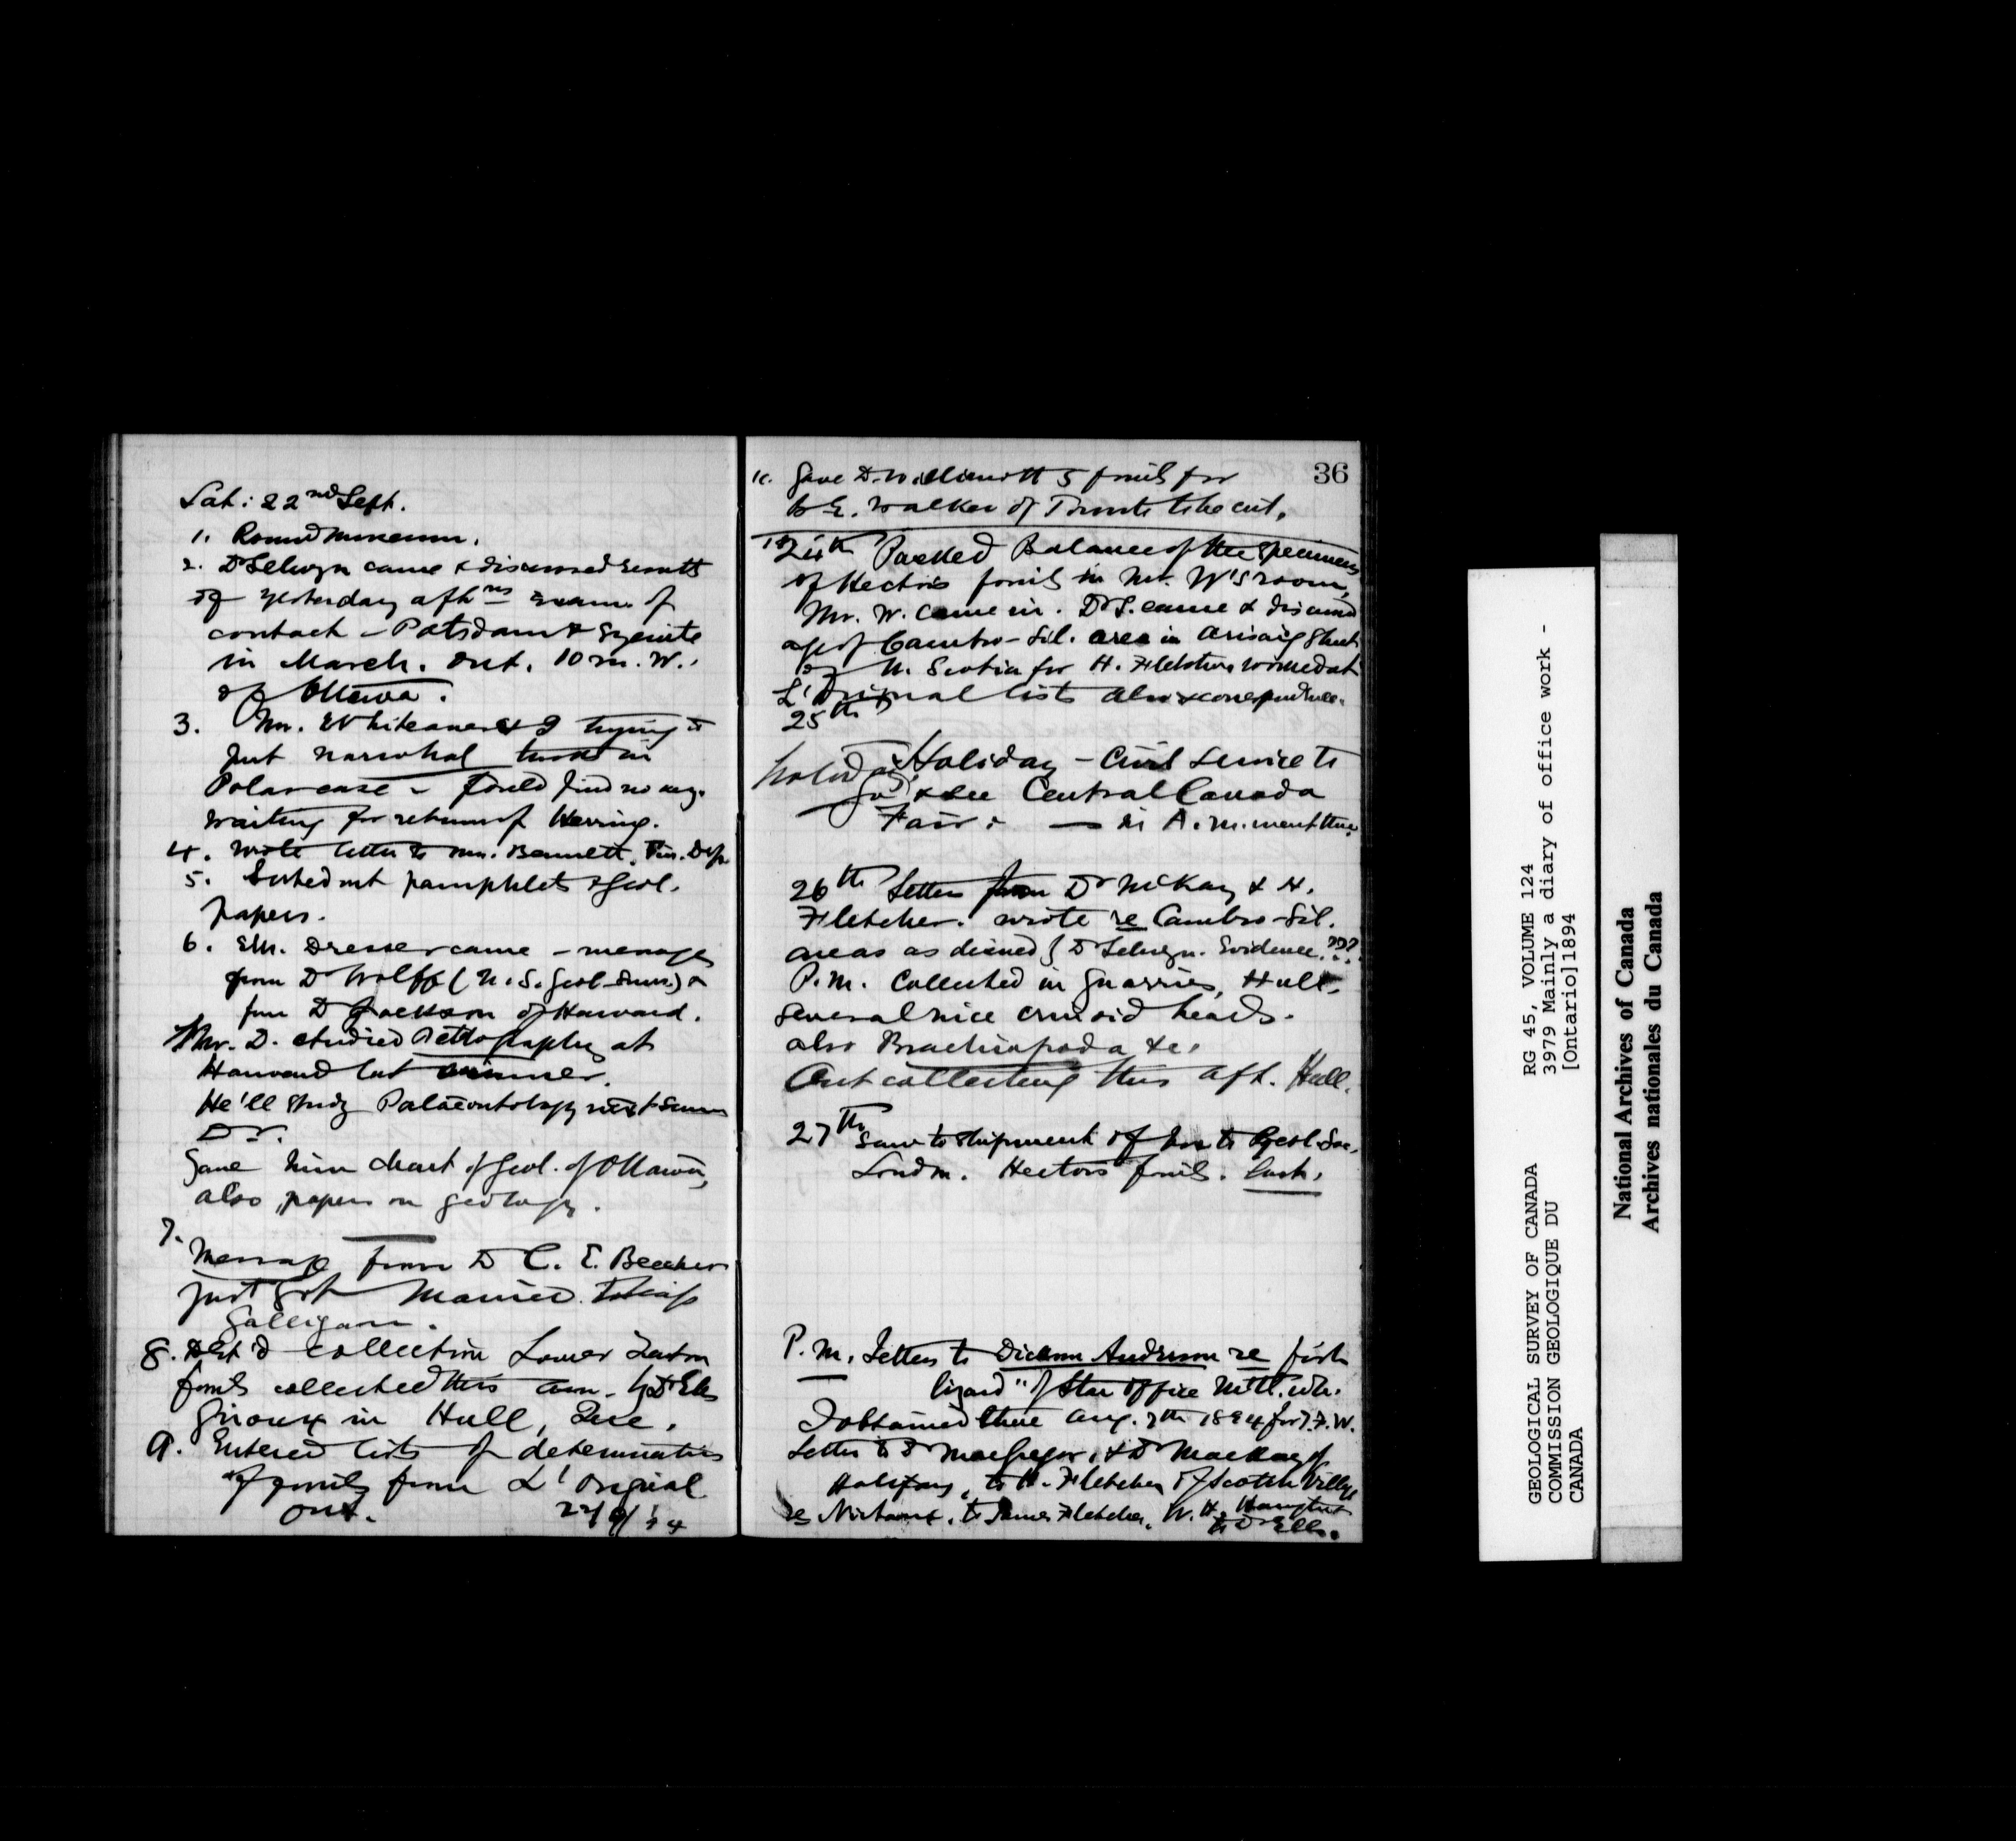 Sat: 22nd Sept.
1. Round museum.
2. Dr Selwyn came & discussed results
of yesterday aftns exam. of
contact - Potsdam & Syenite
in March. Ont. 10 m. W.
of Ottawa.
3. Mr. Whiteaves & I trying to
put narwhal tusk in
Polar case - could find no way.
waiting for return of Herring.
4. wrote letter to Mr. Bennett. Fin. Dep.
5. Sorted out pamphlets & Geol.
papers.
6. Mr. Dresser came - message
from Dr Wolff (U.S. Geol. Surv.) &
from Dr Jackson of Harvard.
Mr. D. studied Petrography at
Harvard last summer.
He'll study Palaeontology next summer
D.V.
Gave him chart of Geol. of Ottawa,
also papers on geology.
7.
Message from Dr C. E. Beecher
just got married to Miss
Galligan.
8. Det'd collection Lower Trenton
fossils collected this by Dr Ells
Giroux in Hull, Que.
9. Entered lists of determinations
of fossils from L'Orignal
Ont. 22/9/94
36
10. Gave D. Willimott 5 fossils for
B. E. Walker of Toronto to be cut.
24th Packed Balance of the specimens
of Hector's fossils in Mr. W's room,
Mr. W. came in. Dr S. came & discussed
age of Cambro-Sil. area in Arisaig sheet
of N. Scotia for H. Fletcher worked at
L'Orignal lists also & correspondence.
25th
holiday Holiday - Civil Service to
go & see Central Canada
Fair. - in A.M. went there
26th Letters from Dr McKay & H.
Fletcher. wrote re Cambro-Sil.
areas as desired by Dr Selwyn. Evidence???
P.M. Collected in quarries, Hull.
several nice crinoid heads.
also Brachiopoda &c.
Out collecting this aft. Hull.
27th Saw to shipment of box to Geol. Soc.
London. Hector's fossils.
P.M. Letters to Dickson Anderson re fish
lizard" of Star office Mtl. wh.
I obtained there Aug. 7th 1894 for J.F.W.
Letter to Dr MacGregor, & Dr MacKay of
Halifax, to H. Fletcher of Scotch Village
re Nictaux, to James Fletcher, W. H.
to Dr Ells.
GEOLOGICAL SURVEY OF CANADA
COMMISSION GEOLOGIQUE DU
CANADA
RG 45, VOLUME 124
3979 Mainly a diary of office work -
[Ontario]1894
National Archives of Canada
Archives nationales du Canada